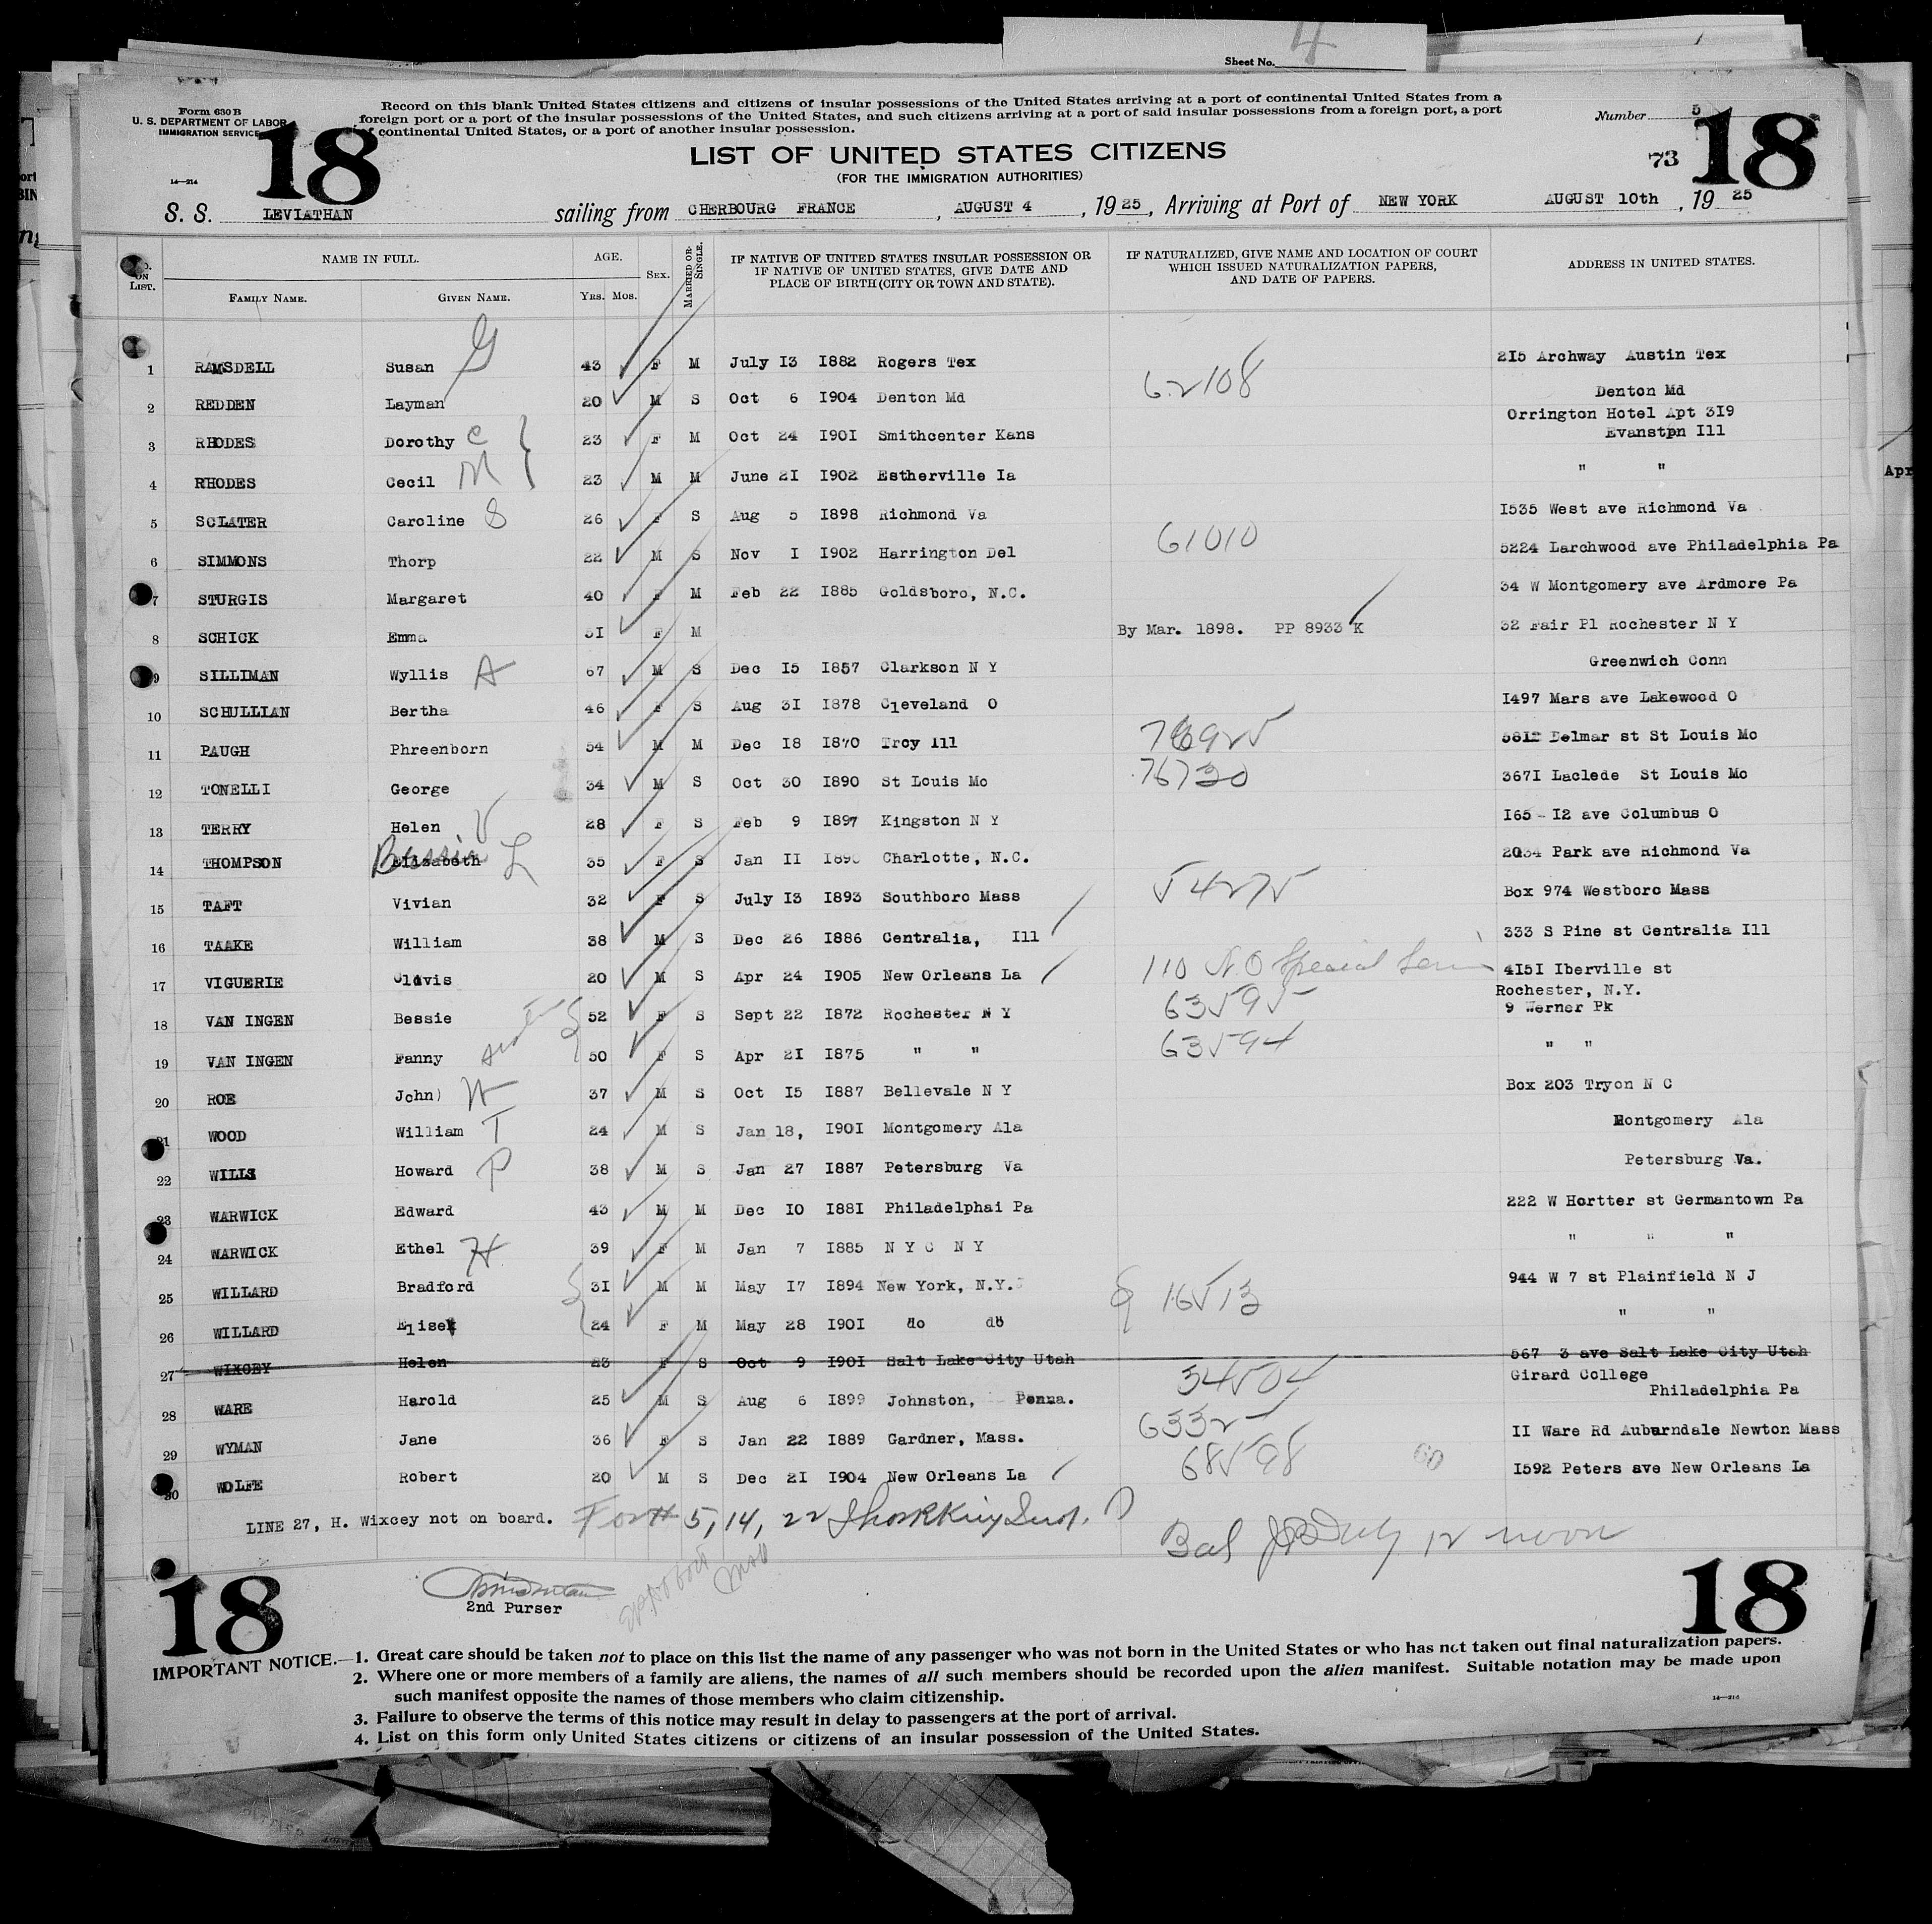 4
Sheet No.
Form 630 B
U. S. DEPARTMENT OF LABOR
IMMIGRATION SERVICE
14—214
18
Record on this blank United States citizens and citizens of insular possessions of the United States arriving at a port of continental United States from a
foreign port or a port of the insular possessions of the United States, and such citizens arriving at a port of said insular possessions from a foreign port, a port
of continental United States, or a port of another insular possession.
Number 5
73
18
LIST OF UNITED STATES CITIZENS
(FOR THE IMMIGRATION AUTHORITIES)
S. S. LEVIATHAN sailing from CHERBOURG FRANCE, AUGUST 4, 1925, Arriving at Port of NEW YORK AUGUST 10th, 1925
No. ON LIST. NAME IN FULL. AGE. SEX. MARRIED OR SINGLE. IF NATIVE OF UNITED STATES INSULAR POSSESSION OR IF NATIVE OF UNITED STATES, GIVE DATE AND PLACE OF BIRTH (CITY OR TOWN AND STATE). IF NATURALIZED, GIVE NAME AND LOCATION OF COURT WHICH ISSUED NATURALIZATION PAPERS, AND DATE OF PAPERS. ADDRESS IN UNITED STATES.
FAMILY NAME. GIVEN NAME. YRS. MOS.
1 RAMSDELL Susan G 43 F M July I3 I882 Rogers Tex 2I5 Archway Austin Tex
2 REDDEN Layman 20 M S Oct 6 I904 Denton Md 62108 Denton Md
3 RHODES Dorothy C 23 F M Oct 24 I90I Smithcenter Kans Orrington Hotel Apt 3I9
Evanston Ill
4 RHODES Cecil M 23 M M June 2I I902 Estherville Ia " "
5 SCLATER Caroline S 26 F S Aug 5 I898 Richmond Va I535 West ave Richmond Va
6 SIMMONS Thorp 22 M S Nov I I902 Harrington Del 61010 5224 Larchwood ave Philadelphia Pa
7 STURGIS Margaret 40 F M Feb 22 I885 Goldsboro, N.C. 34 W Montgomery ave Ardmore Pa
8 SCHICK Emma 5I F M By Mar. 1898. PP 8933 K 32 Fair Pl Rochester N Y
9 SILLIMAN Wyllis A 67 M S Dec I5 I857 Clarkson N Y Greenwich Conn
10 SCHULLIAN Bertha 46 F S Aug 3I I878 Cleveland O I497 Mars ave Lakewood O
11 PAUGH Phreenborn 54 M M Dec I8 I870 Troy Ill 76925 58I2 Delmar st St Louis Mo
12 TONELLI George 34 M S Oct 30 I890 St Louis Mo 76730 367I Laclede St Louis Mo
13 TERRY Helen V 28 F S Feb 9 I897 Kingston N Y I65 - I2 ave Columbus O
14 THOMPSON Elizabeth Bessie L 35 F S Jan II I890 Charlotte, N.C. 2034 Park ave Richmond Va
15 TAFT Vivian 32 F S July I3 I893 Southboro Mass 54275 Box 974 Westboro Mass
16 TAAKE William 38 M S Dec 26 I886 Centralia, Ill 333 S Pine st Centralia Ill
17 VIGUERIE Clovis 20 M S Apr 24 I905 New Orleans La 110 N.O Special 4I5I Iberville st
Rochester, N.Y.
18 VAN INGEN Bessie 52 F S Sept 22 I872 Rochester N Y 63595 9 Werner Pk
19 VAN INGEN Fanny 50 F S Apr 2I I875 " " 63594 " "
20 ROE John) W 37 M S Oct I5 I887 Bellevale N Y Box 203 Tryon N C
21 WOOD William T 24 M S Jan 18, I90I Montgomery Ala Montgomery Ala
22 WILLS Howard P 38 M S Jan 27 I887 Petersburg Va Petersburg Va.
23 WARWICK Edward 43 M M Dec I0 I88I Philadelphai Pa 222 W Hortter st Germantown Pa
24 WARWICK Ethel H 39 F M Jan 7 I885 N Y C N Y " " "
25 WILLARD Bradford 3I M M May I7 I894 New York, N.Y. 16513 944 W 7 st Plainfield N J
26 WILLARD Elise 24 F M May 28 I90I do do " "
27 WIXCEY Helen 23 F S Oct 9 I90I Salt Lake City Utah 567 3 ave Salt Lake City Utah
28 WARE Harold 25 M S Aug 6 I899 Johnston, Penna. 34504 Girard College
Philadelphia Pa
29 WYMAN Jane 36 F S Jan 22 I889 Gardner, Mass. 63325 II Ware Rd Auburndale Newton Mass
30 WOLFE Robert 20 M S Dec 2I I904 New Orleans La 68598 60 I592 Peters ave New Orleans La
LINE 27, H. Wixcey not on board. For # 5, 14, 22
Bal 12 noon
2nd Purser
18
18
IMPORTANT NOTICE.—1. Great care should be taken not to place on this list the name of any passenger who was not born in the United States or who has not taken out final naturalization papers.
2. Where one or more members of a family are aliens, the names of all such members should be recorded upon the alien manifest. Suitable notation may be made upon
such manifest opposite the names of those members who claim citizenship.
3. Failure to observe the terms of this notice may result in delay to passengers at the port of arrival.
4. List on this form only United States citizens or citizens of an insular possession of the United States.
14—214
Apr